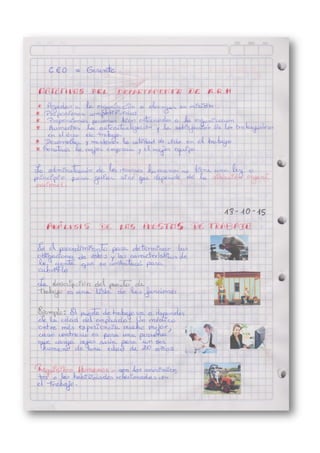 CEO = Gerente
OBJETIVOS DEL DEPARTAMENTO DE A.R.H
* Ayudar a la organización a alcanzar su misión
* Proporcionar competitividad
* Proporcionar personas bien entrenadas a la organización
* Aumentar la autoactualización y la satisfacción de los trabajadores
en el área de trabajo.
* Desarrollar y mantener la calidad de vida en el trabajo
* Construir la mejor empresa y el mejor equipo
La administración de los recursos humanos no tiene una ley o
principio para guiar sino que depende de la situación organi
zacional.
13-10-15
ANÁLISIS DE LOS PUESTOS DE TRABAJO
Es el procedimiento para determinar las
obligaciones de estos y las características de
la gente que se contratará para
cubrirlo
La descripción del puesto de
trabajo es una lista de las funciones
Ejemplo: El puesto de trabajo va a depender
de la edad del empleado? Un médico
entre más experiencia mucho mejor,
caso contrario es para una persona
que carga cajas sería para un ser
humano de una edad de 20 años
Requisitos Humanos = son los conocimien
tos o las habilidades relacionadas en
el trabajo.